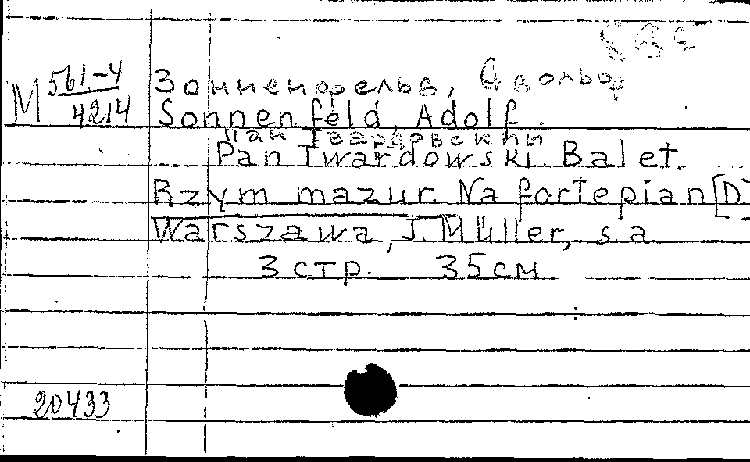 М 561-4
4214
Зонненфельд, Адольф
Sonnenfeld, Adolf.
Пан Твардовский
Pan Twardowski. Balet.
Rzym mazur. Na fortepian [D]
Warszawa, J. Müller, s.a.
3 стр. 35 см
20433